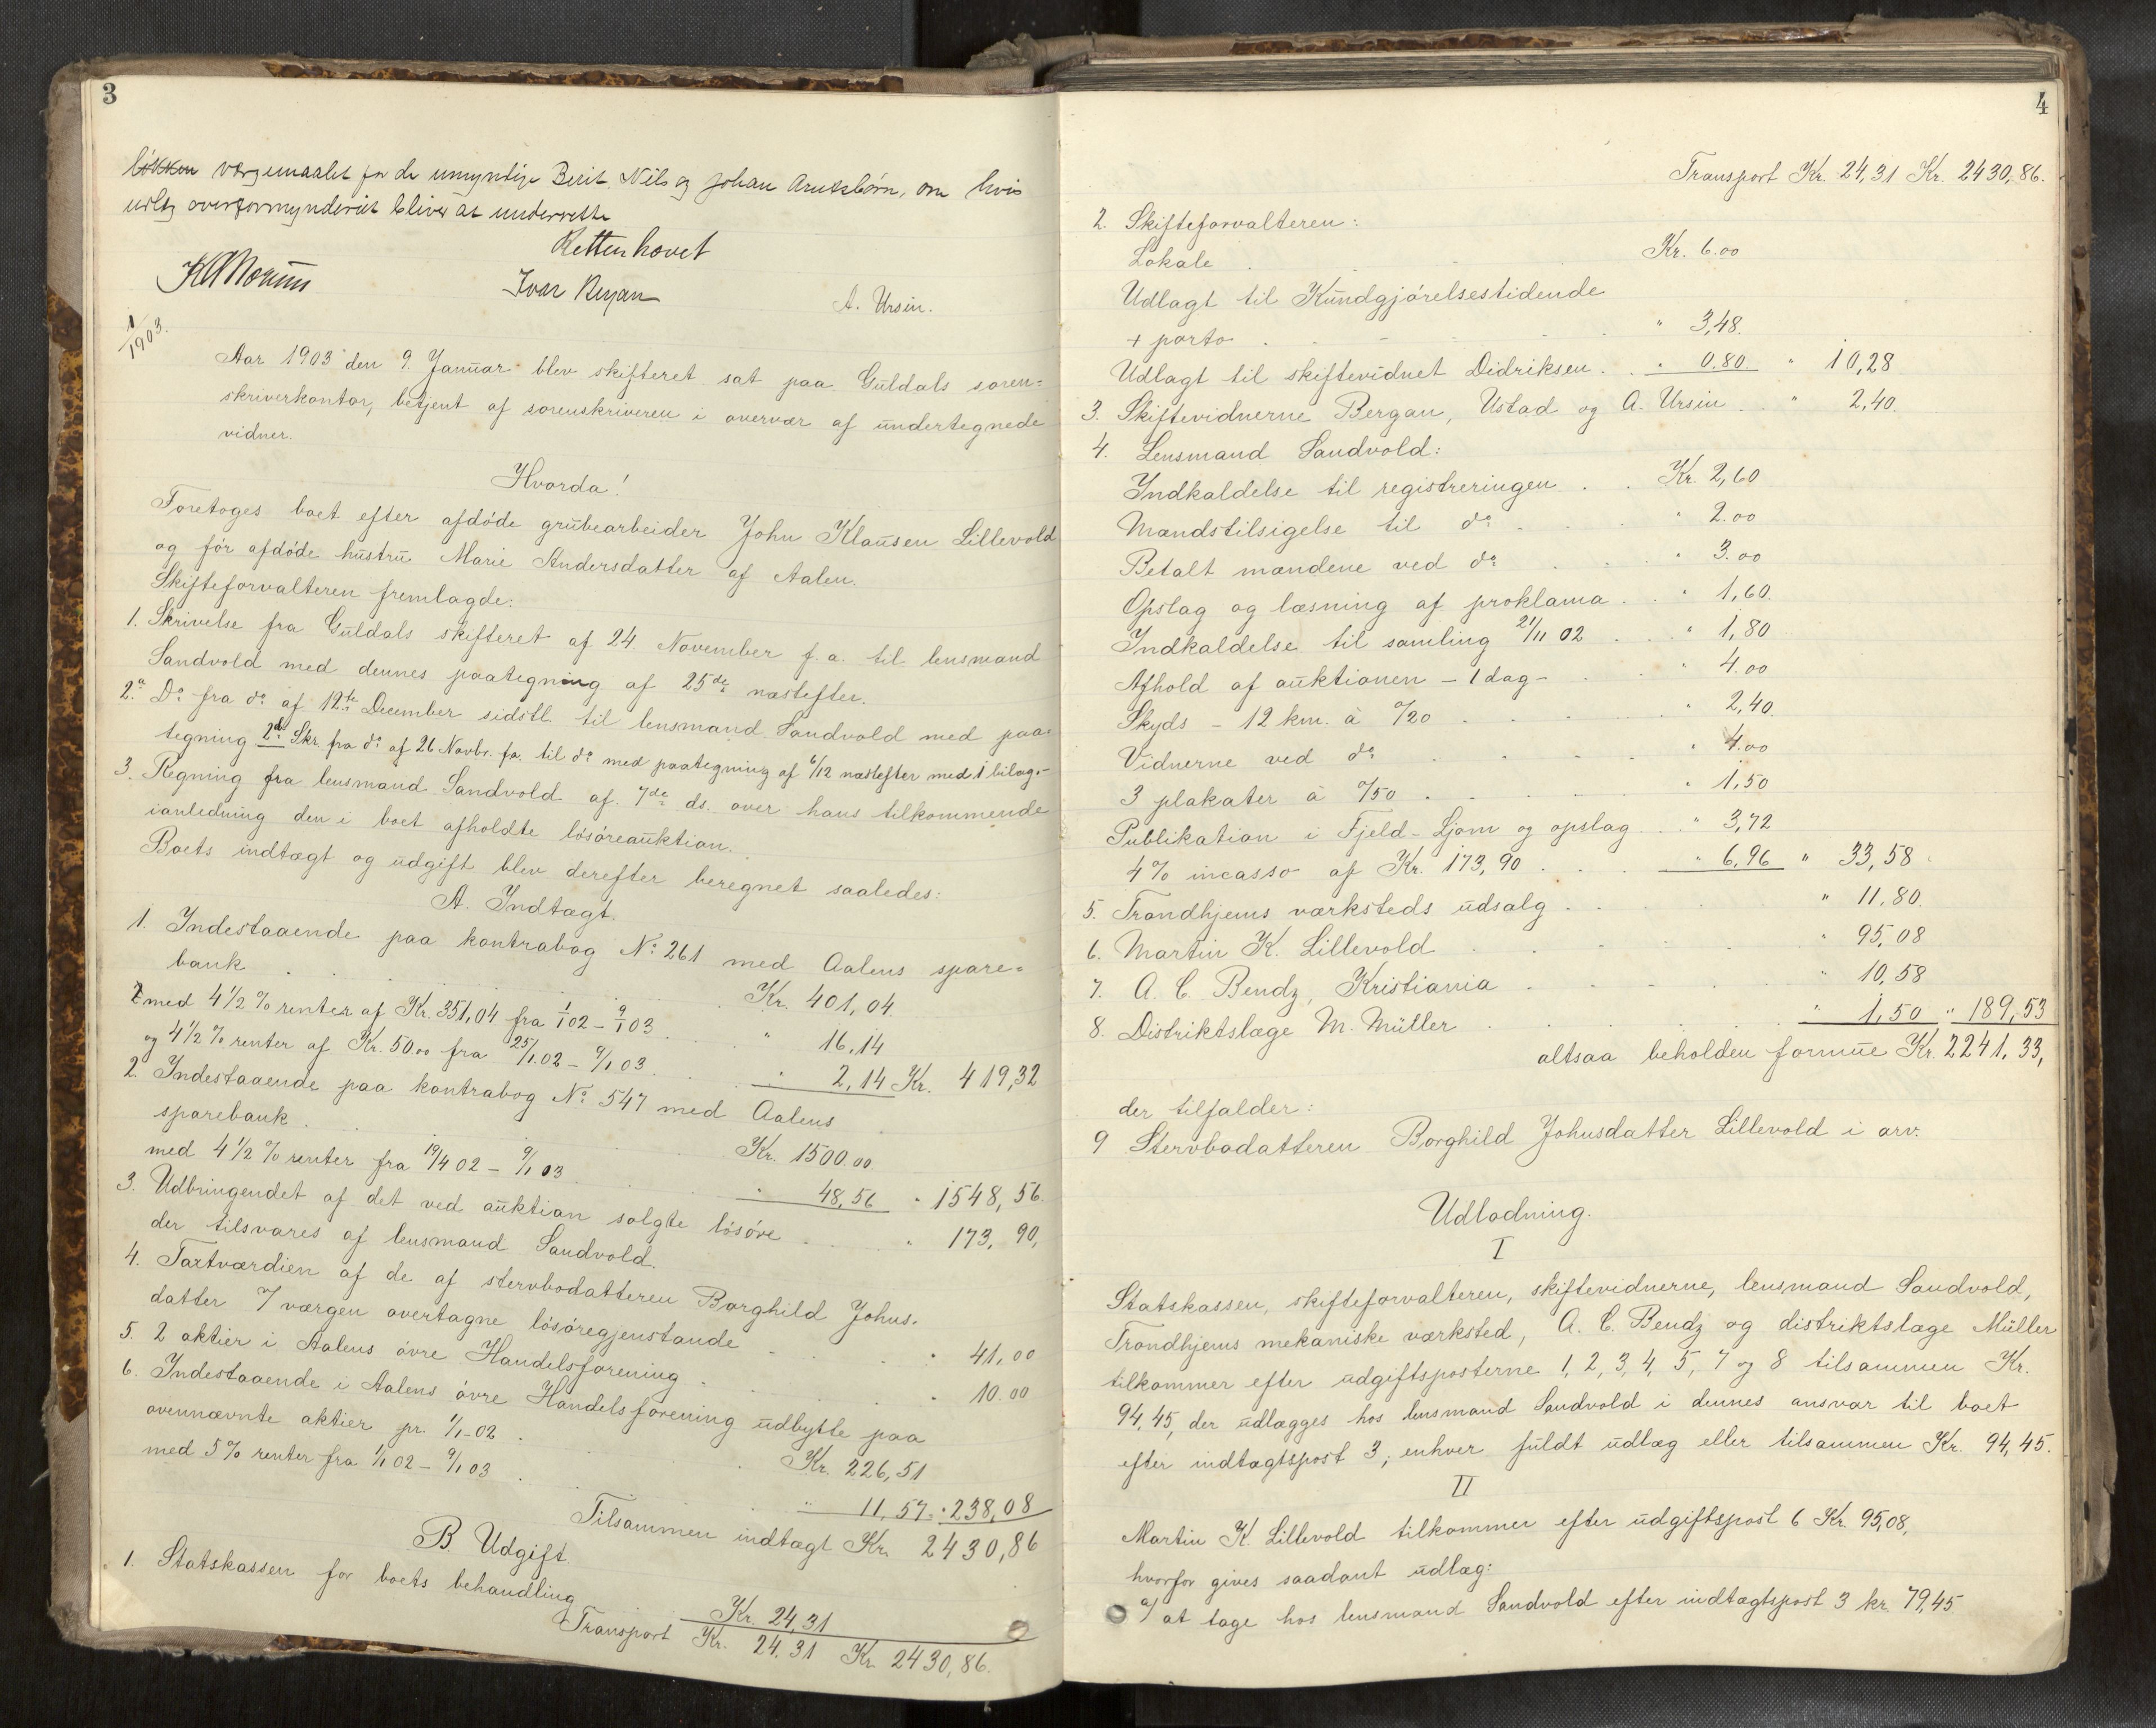 3
løkken værgemaalet for de umyndige Berit, Nils og Johan Arntsbørn, om hvis
udlæg overformynderiet bliver at underrette
Retten hævet
Ivar Bergan
A. Ursin.
1/1903.
Aar 1903 den 9. Januar blev skifteret sat paa Guldals soren=
skriverkontor, betjent af sorenskriveren i overvær af undertegnede
vidner.
Hvorda!
Foretoges boet efter afdøde grubearbeider John Klausen Lillevold
og før afdøde hustru Marie Andersdatter af Aalen.
Skifteforvalteren fremlagde:
1. Skrivelse fra Guldals skifteret af 24. November f.a. til lensmand
Sandvold med dennes paategning af 25de næstefter.
2.a Do fra do af 12te December sidstl. til lensmand Sandvold med paa=
tegning 2b: Skr. fra do af 26 Novbr. fa. til do med paategning af 6/12 næstefter med 1 bilag.-
3. Regning fra lensmand Sandvold af 7de ds. over hans tilkommende
ianledning den i boet afholdte løsøreauktion.
Boets indtægt og udgift blev derefter beregnet saaledes:
A. Indtægt.
1. Indestaaende paa kontrabog No 261 med Aalens spare=
bank . . . Kr. 401,04
med 4 1/2 % renter af Kr. 351,04 fra 1/1 02 - 9/1 03 . . " 16,14
og 4 1/2 % renter af Kr. 50.00 fra 25/1.02 - 9/1 03 . . " 2,14 Kr. 419,32
2. Indestaaende paa kontrabog No 547 med Aalens
sparebank . . . Kr. 1500.00
med 4 1/2 % renter fra 19/4 02 - 9/1 03 . . " 48,56 " 1548,56.
3. Udbringendet af det ved auktion solgte løsøre . . " 173,90,
der tilsvares af lensmand Sandvold.
4. Taxtværdien af de af stervbodatteren Borghild Johns.
datter v/værgen overtagne løsøregjenstande . . " 41,00
5. 2 aktier i Aalens øvre Handelsforening . . " 10.00
6. Indestaaende i Aalens øvre Handelsforening udbytte paa
ovennævnte aktier pr. 1/1-02 . . Kr. 226,51
med 5% renter fra 1/1 02 - 9/1 03 . . " 11,57 " 238,08
Tilsammen indtægt Kr. 2430,86
B. Udgift.
1. Statskassen for boets behandling Kr. 24,31
Transport Kr. 24.31 Kr. 2430,86.
4
Transport Kr. 24,31 Kr. 2430,86.
2. Skifteforvalteren:
Lokale . . Kr. 6.00
Udlagt til Kundgjørelsestidende
+ porto . . " 3,48.
Udlagt til skiftevidnet Didriksen . . " 0.80 " 10,28
3. Skiftevidnerne Bergan, Ustad og A. Ursin . . " 2,40.
4. Lensmand Sandvold:
Indkaldelse til registreringen . . Kr. 2,60
Mandstilsigelse til do . . " 2.00
Betalt mændene ved do . . " 3.00
Opslag og læsning af proklama . . " 1,60.
Indkaldelse til samling 21/11 02 . . " 1,80
Afhold af auktionen - 1 dag - . . " 4.00
Skyds - 12 km. à %20 . . " 2,40.
Vidnerne ved do . . " 4.00
3 plakater à %50 . . " 1,50
Publikation i Fjeld-Ljom og opslag . . " 3,72
4% incasso af Kr. 173,90 . . " 6,96 " 33,58
5. Trondhjems værksteds udsalg . . " 11.80.
6. Martin K. Lillevold . . " 95,08
7. A. C. Bendz, Kristiania . . " 10,58
8. Distriktslæge M. Müller . . " 1,50 " 189,53
altsaa beholden formue Kr. 2241,33,
der tilfalder:
9 Stervbodatteren Borghild Johnsdatter Lillevold i arv.
Udlodning.
I
Statskassen, skifteforvalteren, skiftevidnerne, lensmand Sandvold,
Trondhjems mekaniske værksted, A. C. Bendz og distriktslæge Müller
tilkommer efter udgiftsposterne 1, 2, 3, 4, 5, 7 og 8 tilsammen Kr.
94,45, der udlægges hos lensmand Sandvold i dennes ansvar til boet
efter indtægtspost 3; enhver fuldt udlæg eller tilsammen Kr. 94,45.
II
Martin K. Lillevold tilkommer efter udgiftspost 6 Kr. 95,08,
hvorfor gives saadant udlæg:
a/ at tage hos lensmand Sandvold efter indtægtspost 3 kr. 79,45